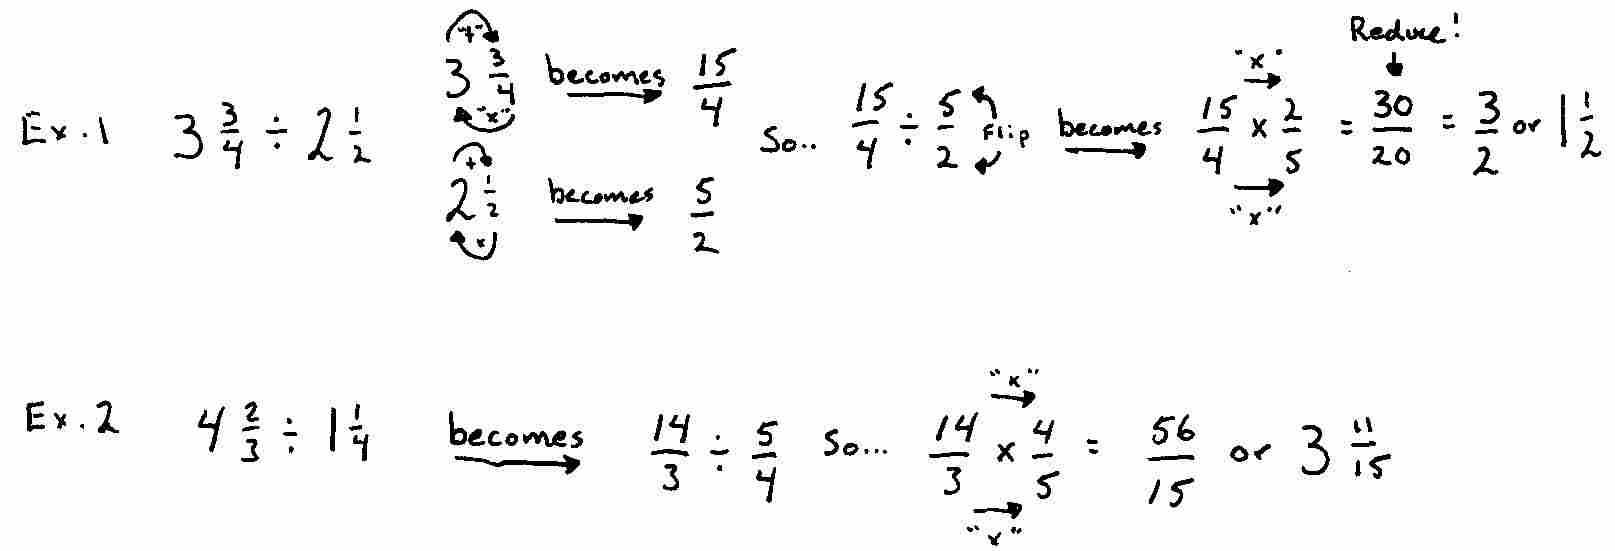 Ex.1 3 3/4 ÷ 2 1/2
"+"
3 3/4 becomes 15/4
"x"
+
2 1/2 becomes 5/2
x
So.. 15/4 ÷ 5/2 Flip becomes 15/4 x 2/5 = 30/20 = 3/2 or 1 1/2
"x"
"x"
Reduce!
Ex.2 4 2/3 ÷ 1 1/4 becomes 14/3 ÷ 5/4 So... 14/3 x 4/5 = 56/15 or 3 11/15
"x"
"x"